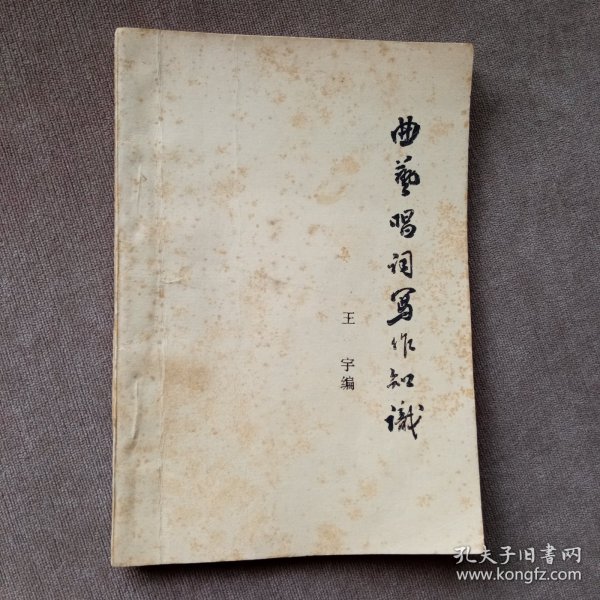 曲藝唱词写作知識
王宇编
孔夫子旧書网
www.kongfz.com